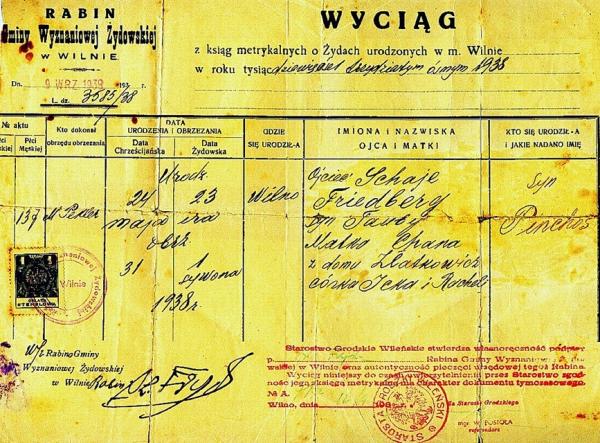 RABIN
Gminy Wyznaniowej Żydowskiej
W WILNIE
Dn. 9 WRZ 1938 193 r.
L. dz. 3585/38
WYCIĄG
z ksiąg metrykalnych o Żydach urodzonych w m. Wilnie
w roku tysiąc dziewięćset trzydziestym ósmym 1938
№ aktu
Płci Żeńskiej
Płci Męskiej
Kto dokonał
obrzędu obrzezania
DATA
URODZENIA I OBRZEZANIA
Data
Chrześcijańska
Data
Żydowska
GDZIE
SIĘ URODZIŁ-A
IMIONA i NAZWISKA
OJCA i MATKI
KTO SIĘ URODZIŁ-A
I JAKIE NADANO IMIĘ
137
Urodz
24 23
maja ira
obrz
31 1
sywona
1938 r
Wilno
Ojciec Schaje
Friedberg
syn Tauby
Matka Chana
z domu Złatkowicz
córka Icka i Racheli
syn
Pinchos
1
OPŁATA
STEMPLOWA
Wyznaniowej Żydowskiej
Wilnie
Rabina Gminy
Wyznaniowej Żydowskiej
w Wilnie Rabin
Starostwo Grodzkie Wileńskie stwierdza własnoręczność podpisu
p. Rabina Gminy Wyznaniowej
w Wilnie oraz autentyczność pieczęci urzędowej tegoż Rabina.
Wyciąg niniejszy do czasu uwierzytelnienia przez Starostwo zgodności
jego z księgą metrykalną ma charakter dokumentu tymczasowego.
№ A.
Wilno, 193
Za Starostę Grodzkiego
mgr. W. POSIOŁA
referendarz